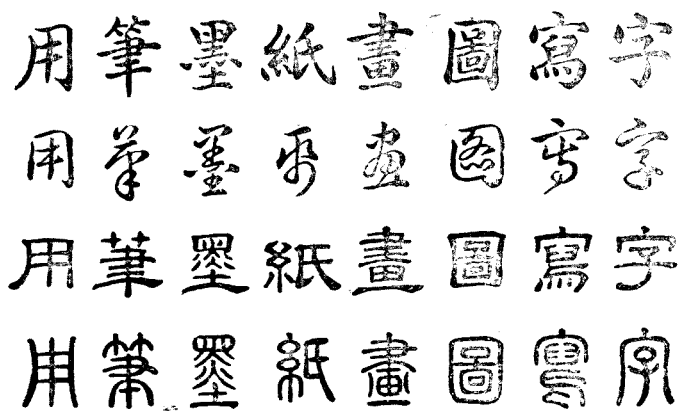 用筆墨紙畫圖寫字
用筆墨紙畫圖寫字
用筆墨紙畫圖寫字
用筆墨紙畫圖寫字